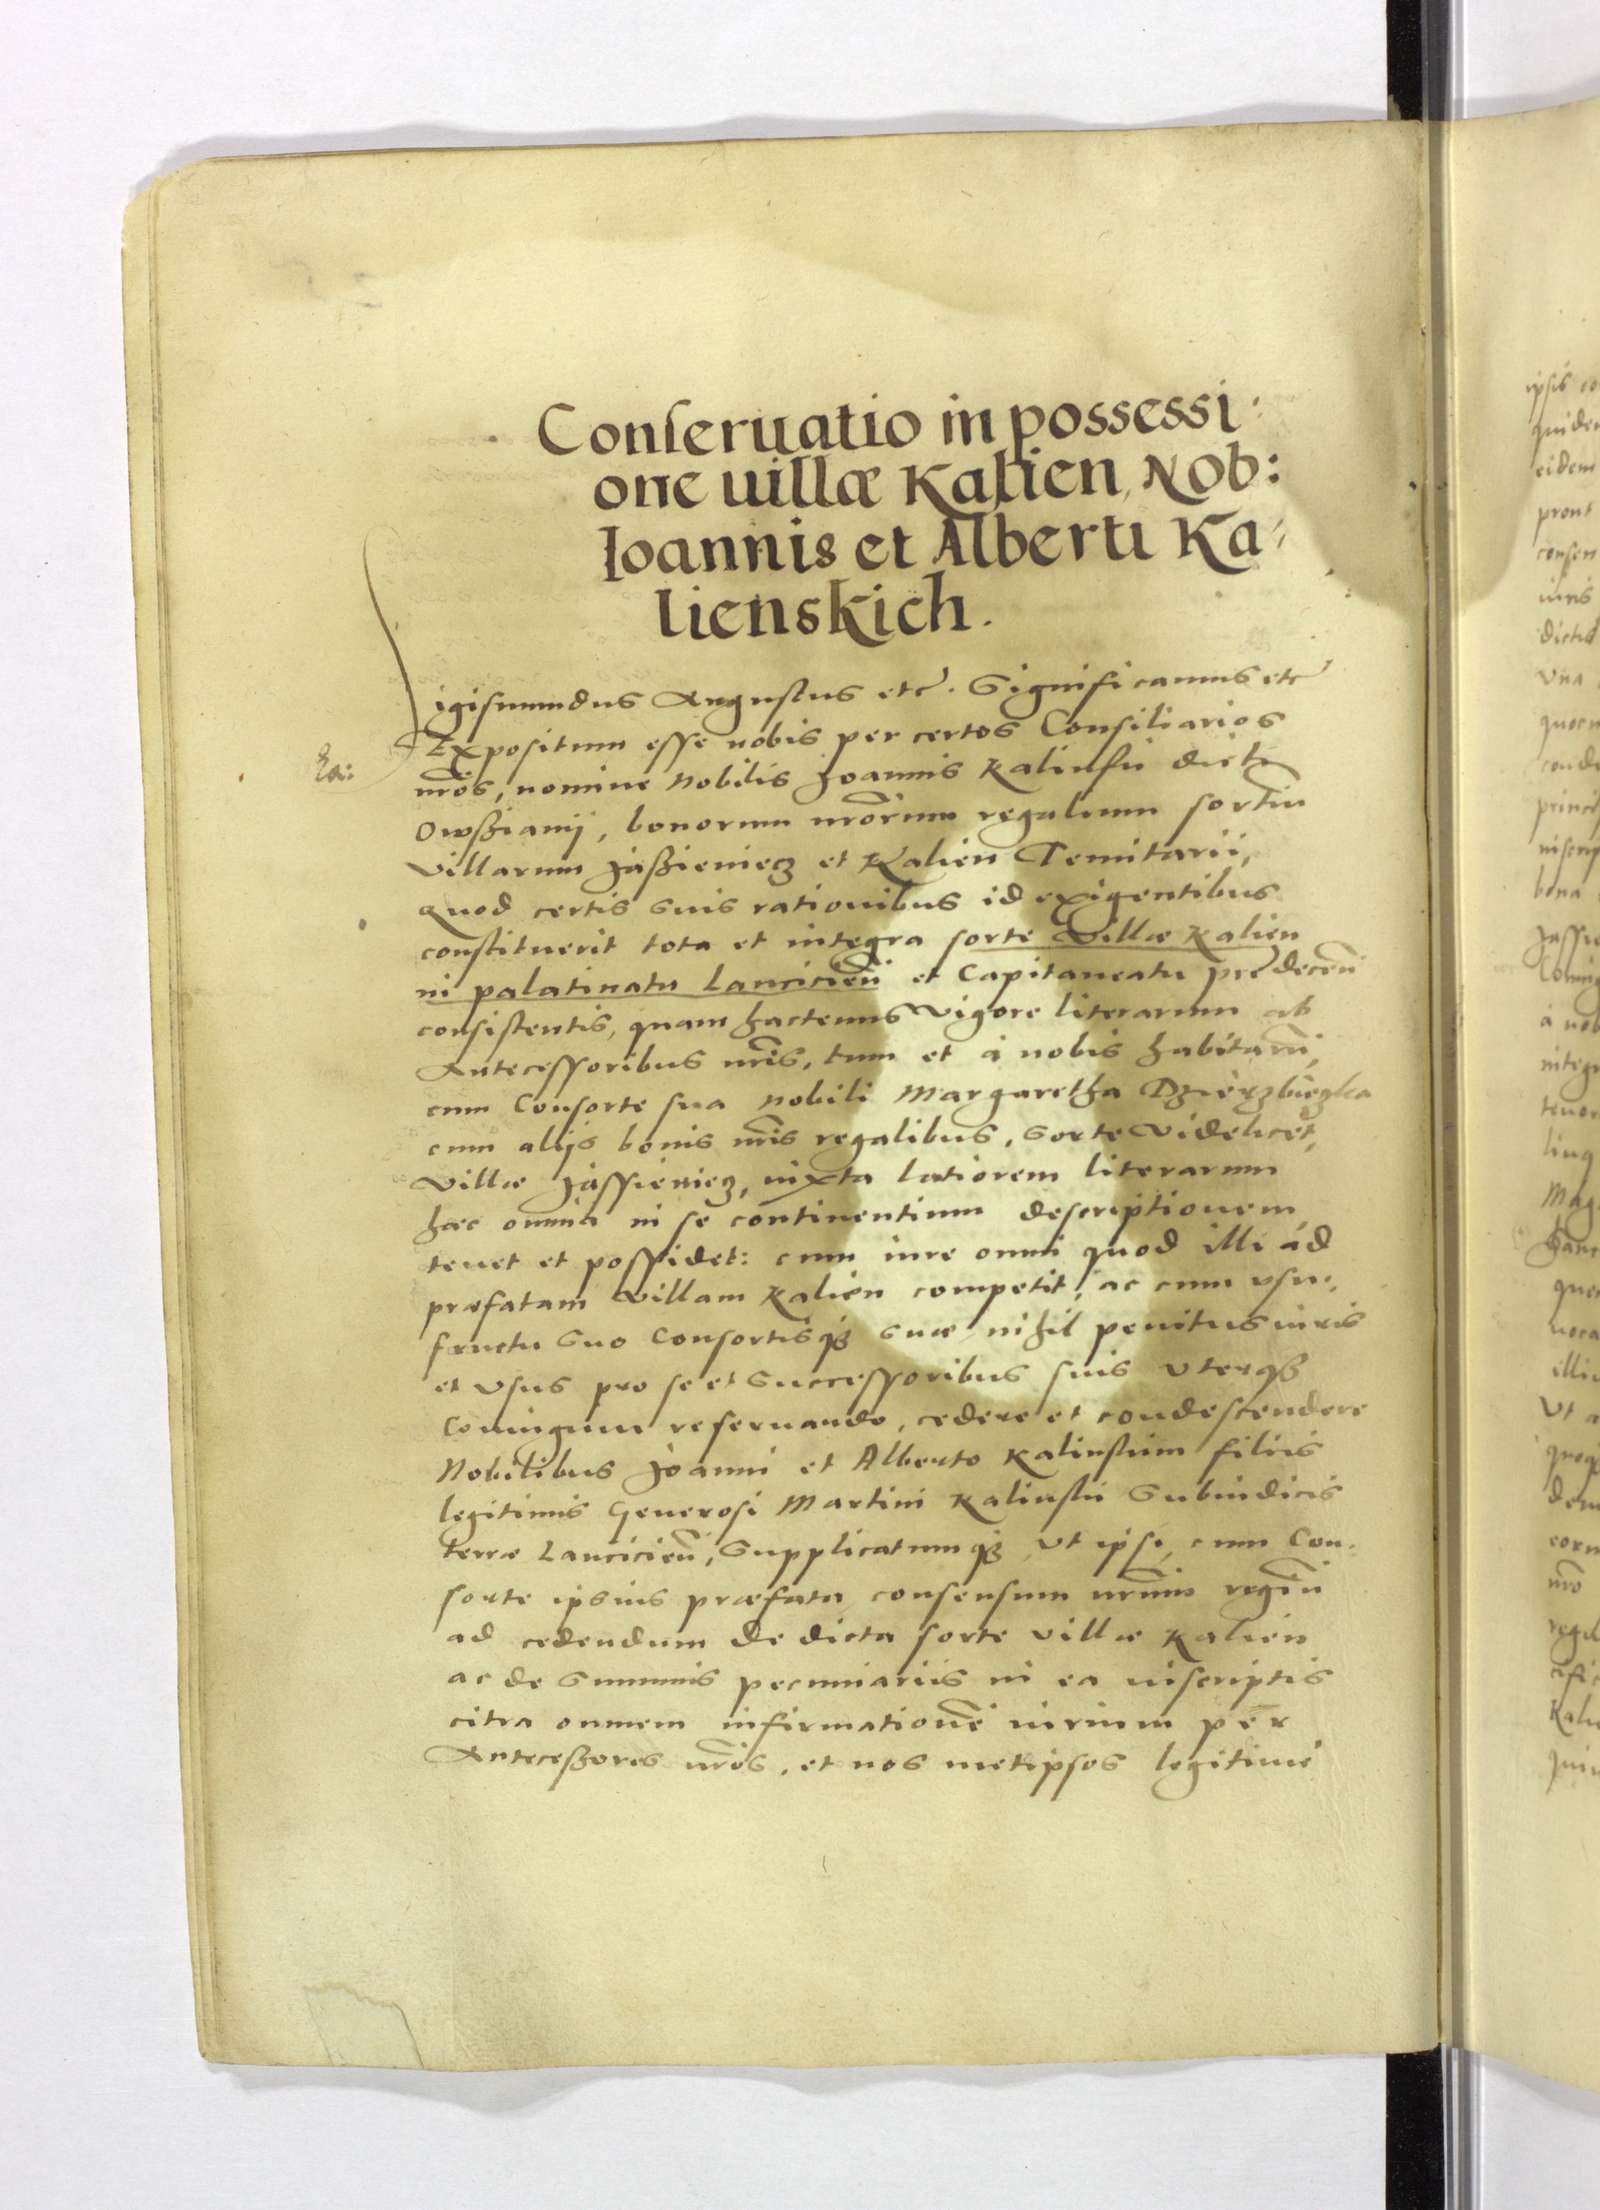 Conseruatio in possessi:
one uillæ Kalien, Nob:
Ioannis et Alberti Ka,
lienskich.
Sigismundus Augustus etc. Significamus etc
Expositum esse nobis per certos Consiliarios
nros, nomine Nobilis Joannis Kalinsii dicti
Owßianij, bonorum nrorum regalium sortium
villarum Jaßieniecz et Kalien Tenutarii,
quod certis suis rationibus id exigentibus
constituerit tota et integra sorte villæ Kalien
in palatinatu Lancicien et Capitaneatu
consistentis, quam hactenus vigore literarum ab
Antecessoribus nris, tum et à nobis habitarum,
cum Consorte sua Nobili Margaretha Dzierzbiezka
cum alijs bonis nris regalibus, sorte videlicet,
villæ Jassieniecz, iuxta latiorem literarum
hæc omnia in se continentium descriptionem
tenet et possidet: cum iure omni quod illi ad
præfatam villam Kalien competit, ac cum usu,
fructu suo Consortisq3 suæ, nihil penitus iuris
et usus pro se et Successoribus suis uterq3
Coniugum reseruando, cedere et condescendere
Nobilibus Joanni et Alberto Kalinskim filiis
legitimis Generosi Martini Kalinskii Subiudicis
terræ Lancicien, Supplicatumq3 Ut ipsi, cum Con.
sorte ipsius præfata consensum nrum regium
ad cedendum de dicta sorte villæ Kalien
ac de Summis pecuniariis in ea inscriptis
citra omnem infirmationem iurium per
Antecessores nros, et nos metipsos legitime
Ka: